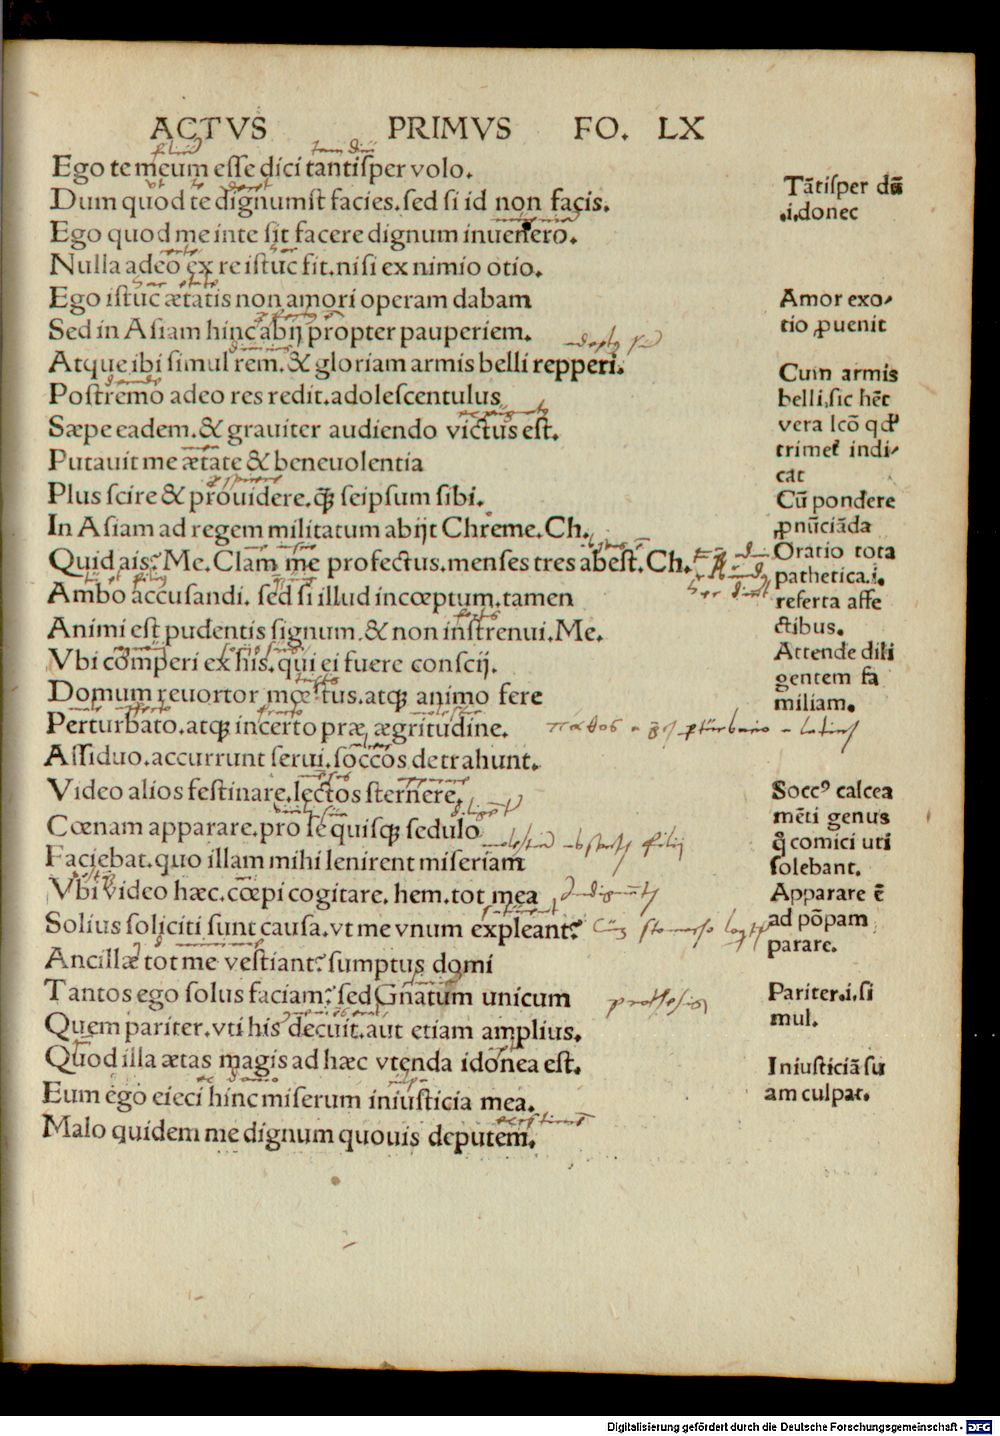 ACTVS PRIMVS FO. LX
Ego te meum esse dici tantisper volo.
Dum quod te dignumst facies. sed si id non facis.
Ego quod me inte sit facere dignum inuenero.
Nulla adeo ex re istuc fit. nisi ex nimio otio.
Ego istuc ætatis non amori operam dabam
Sed in Asiam hinc abij propter pauperiem.
Atque ibi simul rem. & gloriam armis belli repperi.
Postremo adeo res redit. adolescentulus
Sæpe eadem. & grauiter audiendo victus est.
Putauit me ætate & beneuolentia
Plus scire & prouidere. q̃ꝫ seipsum sibi.
In Asiam ad regem militatum abijt Chreme. Ch.
Quid ais? Me. Clam me profectus. menses tres abest. Ch.
Ambo accusandi. sed si illud incœptum. tamen
Animi est pudentis signum. & non instrenui. Me.
Vbi comperi ex his. qui ei fuere conscij.
Domum reuortor mœstus. atqꝫ animo fere
Perturbato. atqꝫ incerto præ ægritudine.
Assiduo. accurrunt serui. soccos detrahunt.
Video alios festinare. lectos sternere.
Cœnam apparare. pro se quisqꝫ sedulo
Faciebat. quo illam mihi lenirent miseriam
Vbi video hæc. cœpi cogitare. hem. tot mea
Solius soliciti sunt causa. vt me vnum expleant?
Ancillæ tot me vestiant? sumptus domi
Tantos ego solus faciam? sed Gnatum unicum
Quem pariter. vti his decuit. aut etiam amplius.
Quod illa ætas magis ad hæc vtenda idonea est.
Eum ego eieci hinc miserum iniusticia mea.
Malo quidem me dignum quouis deputem.
Tãtisper dũ
.i. donec
Amor exo
tio ꝓuenit
Cum armis
belli. sic hẽt
vera lcõ qd̛
trimet̛ indi
cat
Cũ pondere
ꝓnũciãda
Oratio tota
pathetica. i.
referta affe
ctibus.
Attende dili
gentem fa
miliam.
Soccꝰ calcea
mẽti genus
q̃ comici uti
solebant.
Apparare ẽ
ad põpam
parare.
Pariter. i. si
mul.
Iniusticiã su
am culpat.
Digitalisierung gefördert durch die Deutsche Forschungsgemeinschaft - DFG